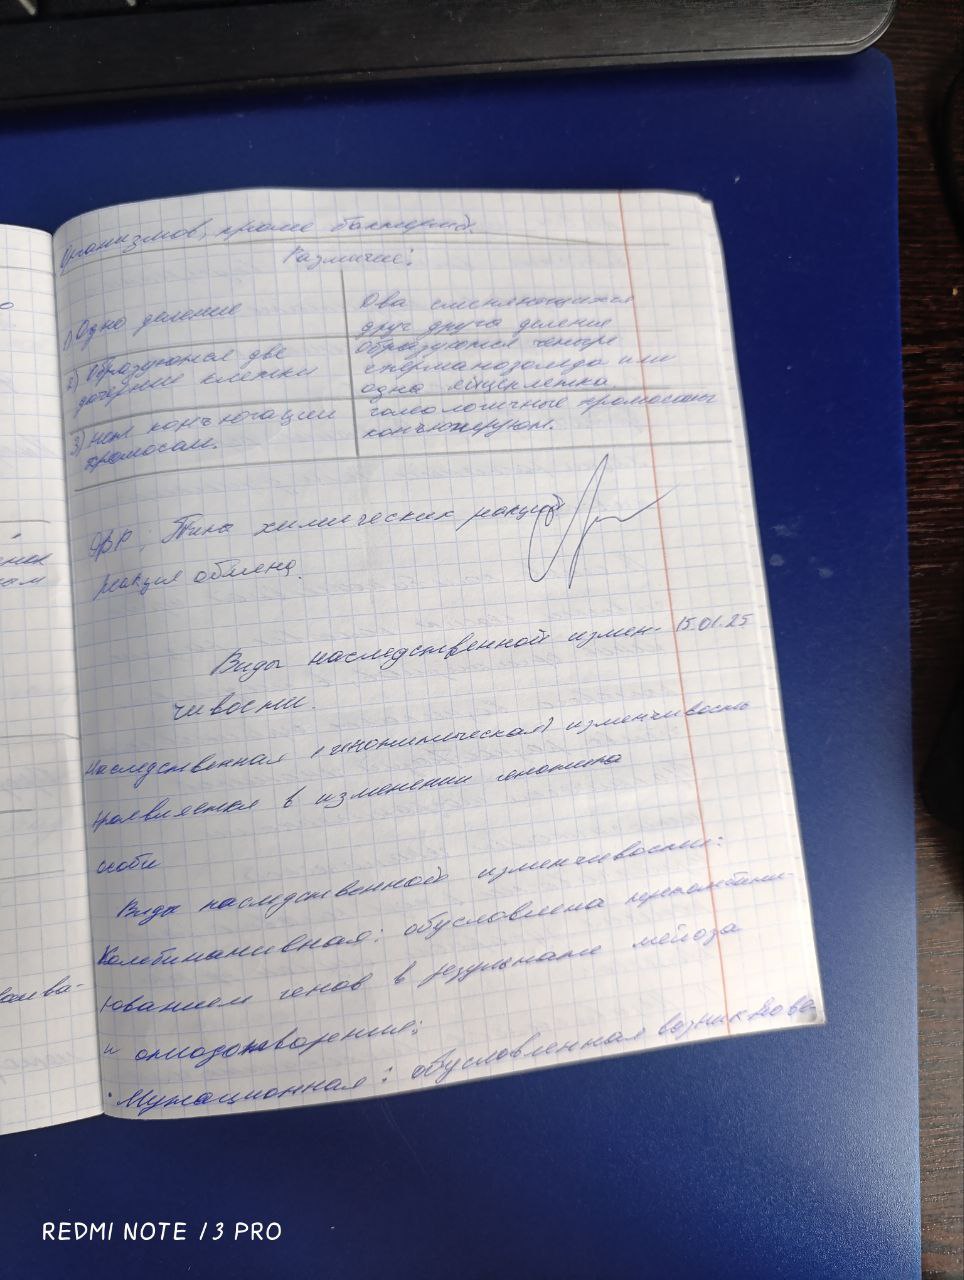 Организмов, кроме бактерий.
Различие:
1) Одно деление
Два сменяющихся
друг друга деления
2) Образуются две
дочерние клетки
Образуются четыре
сперматозоида или
одна яйцеклетка.
3) нет конъюгации
хромосом.
гомологичные хромосомы
конъюгируют.
ОВР, Типа химических реакций
реакция обмена.
15.01.25
Виды наследственной измен-
чивости.
Наследственная (генотипическая) изменчивость
проявляется в изменении генотипа
особи
Виды наследственной изменчивости:
Комбинативная: обусловлена перекомбини-
рованием генов в результате мейоза
и оплодотворения;
• Мутационная: обусловленная возникнове
REDMI NOTE 13 PRO